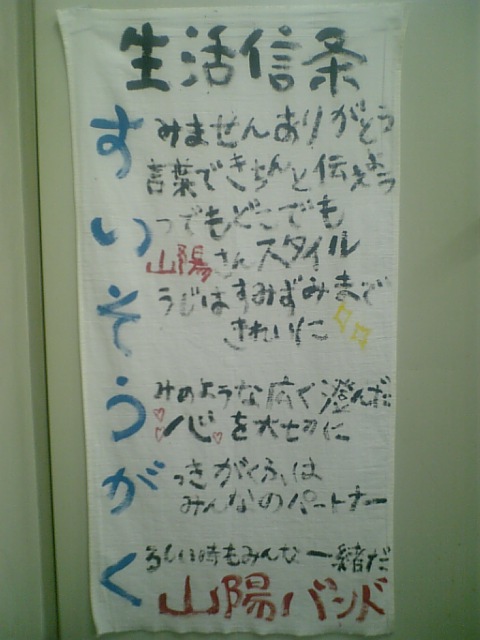 生活信条
すみませんありがとう
言葉できちんと伝えよう
いつでもどこでも
山陽さんスタイル
そうじはすみずみまで
きれいに
うみのような広く澄んだ
心を大切に
がっきがくふは
みんなのパートナー
くるしい時もみんな一緒だ
山陽バンド